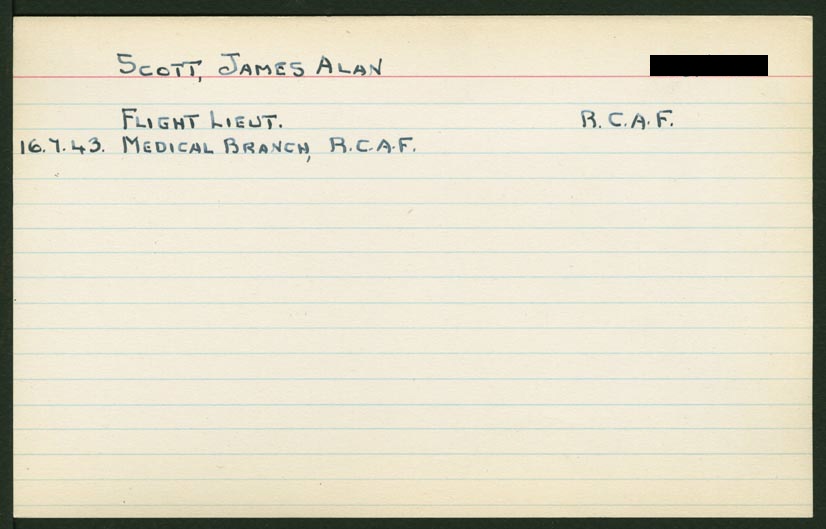 SCOTT, JAMES ALAN
FLIGHT LIEUT. R.C.A.F.
16.7.43. MEDICAL BRANCH, R.C.A.F.